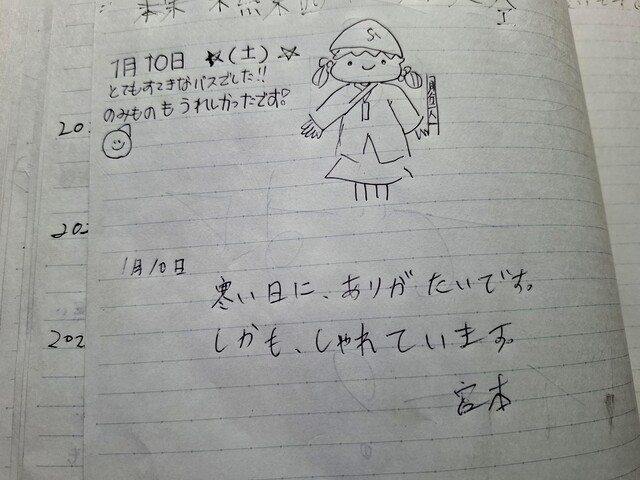 1月10日 ☆(土)☆
とてもすてきなバスでした!!
のみものも うれしかったです。
S
202
202
202
1月10日
寒い日に、ありがたいです。
しかも、しゃれています。
宮本